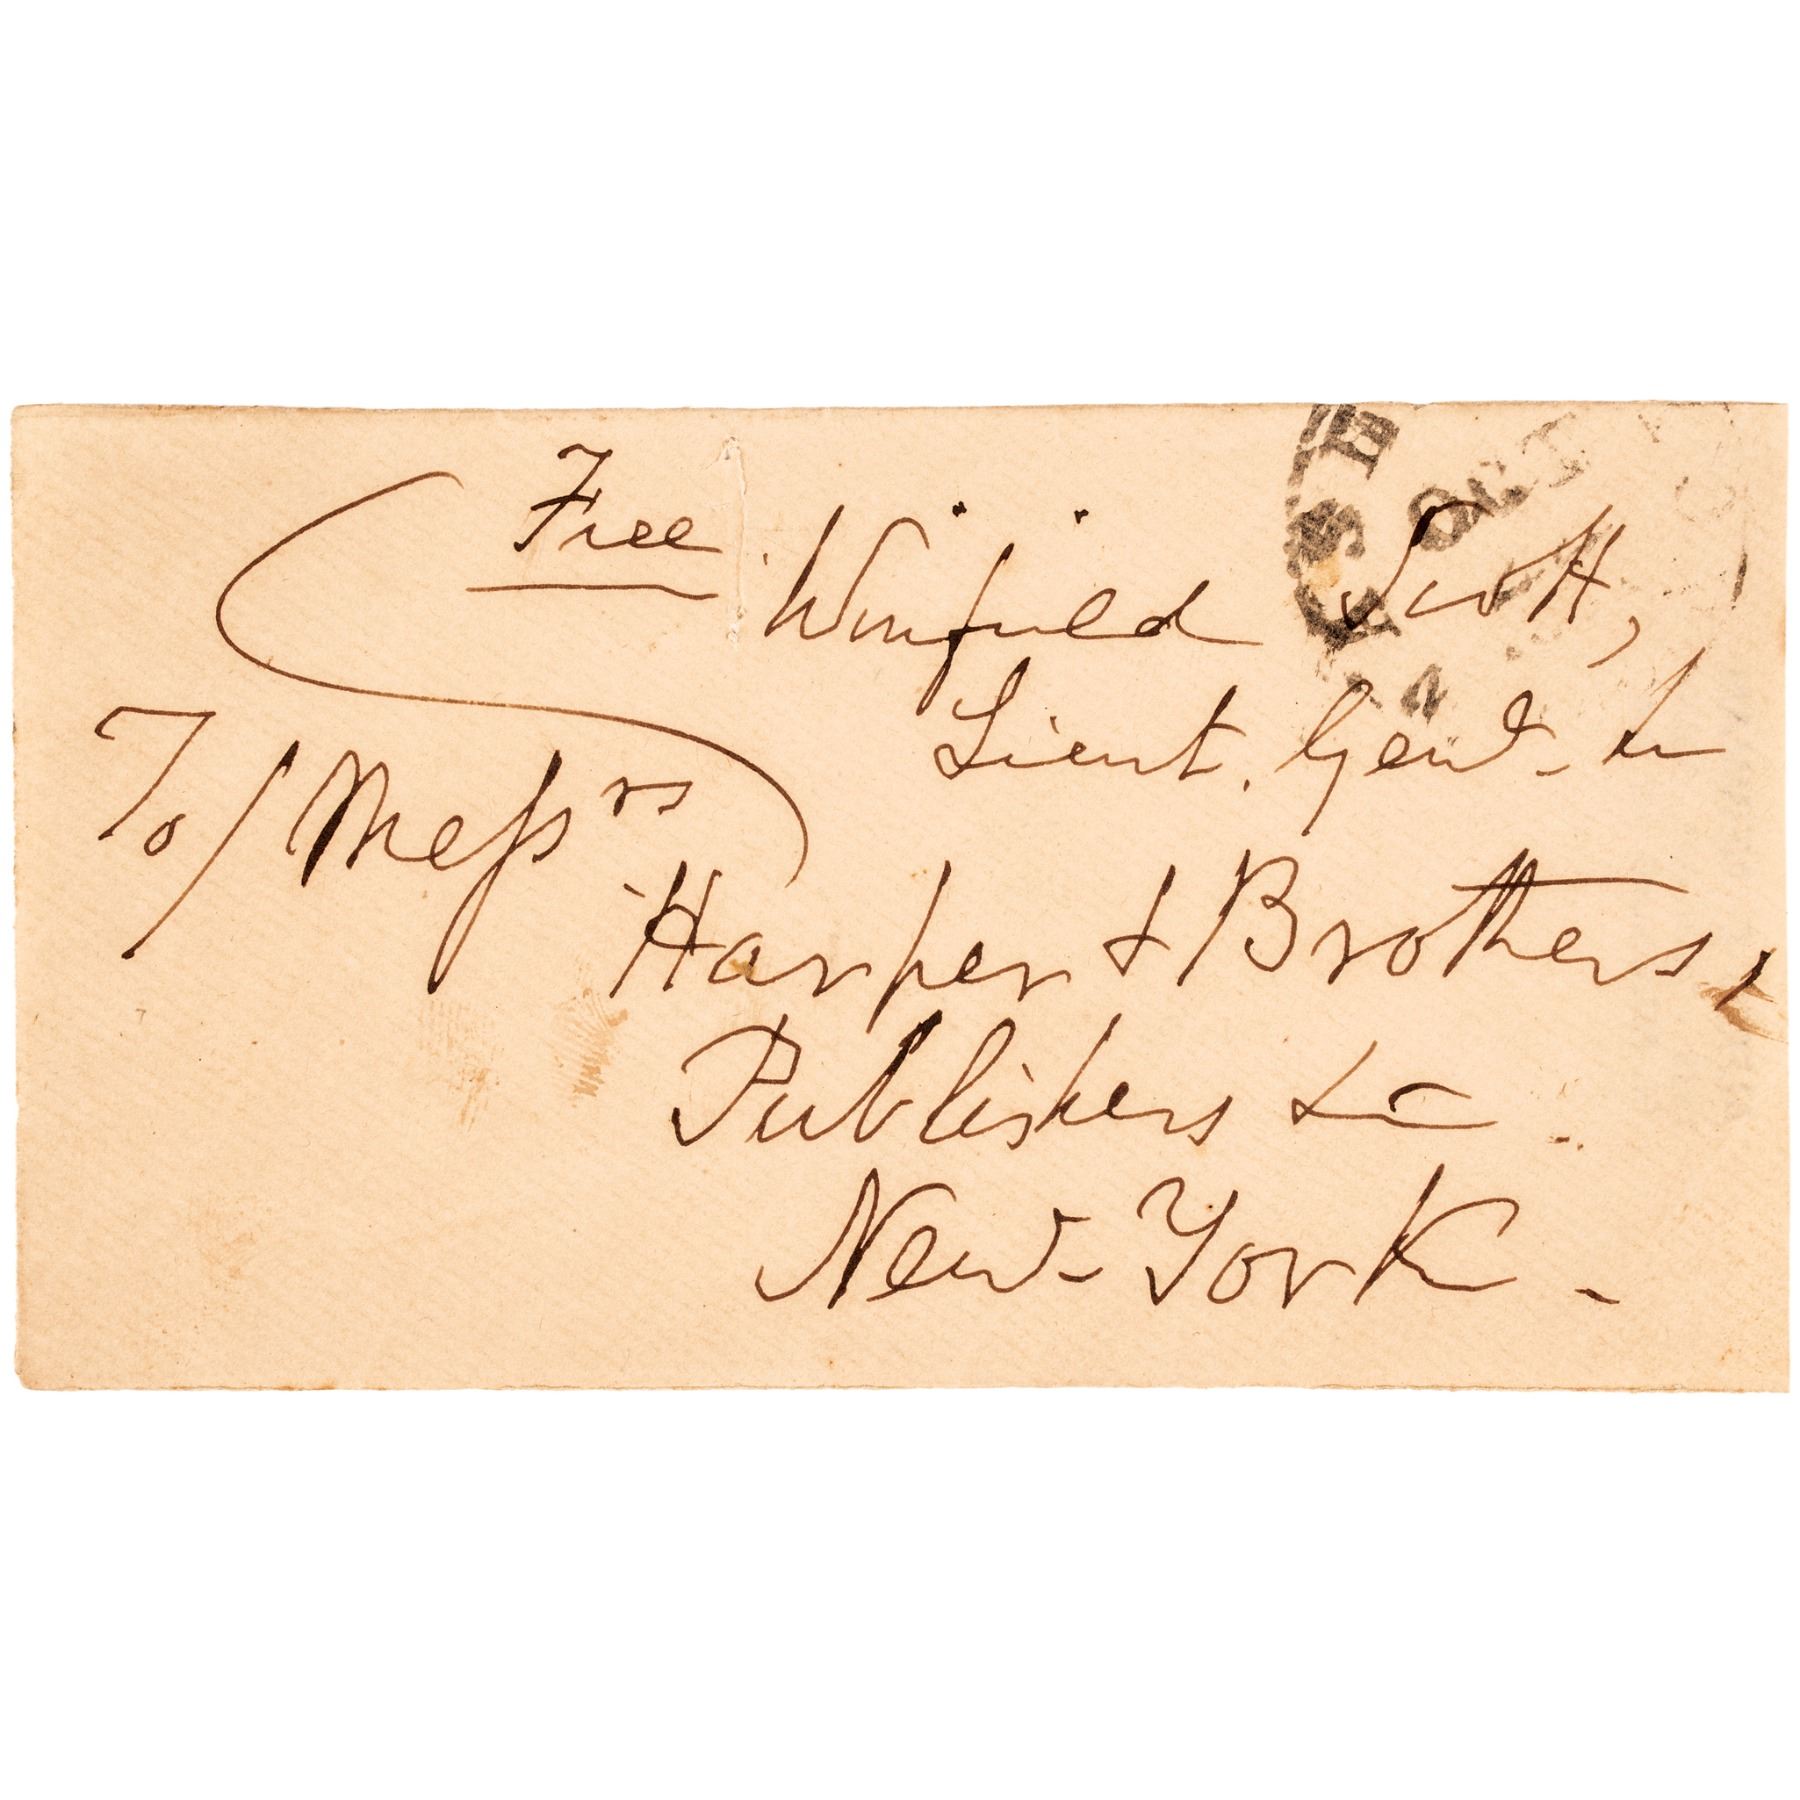 Free
Winfield Scott,
Lieut. Genl.
To/ Messrs
Harper & Brothers,
Publishers &c
New-York-
OCT